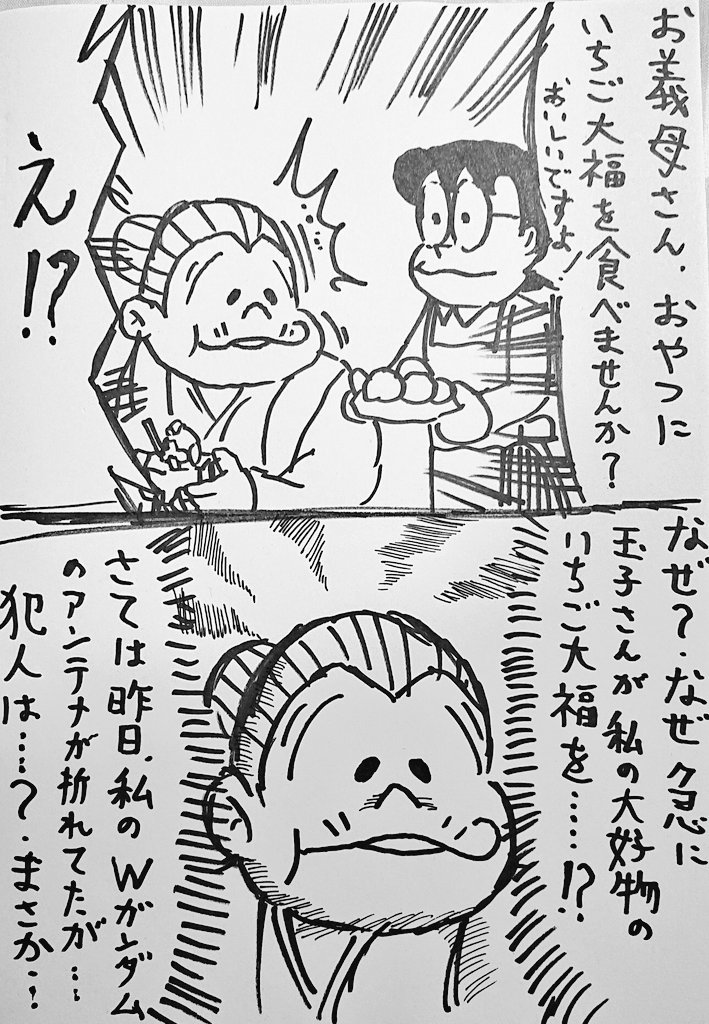 お義母さん、おやつに
いちご大福を食べませんか?
おいしいですよ!
え!?
なぜ?なぜ急に
玉子さんが私の大好物の
いちご大福を……!?
さては昨日、私のWガンダム
のアンテナが折れてたが…
犯人は……?まさか…!